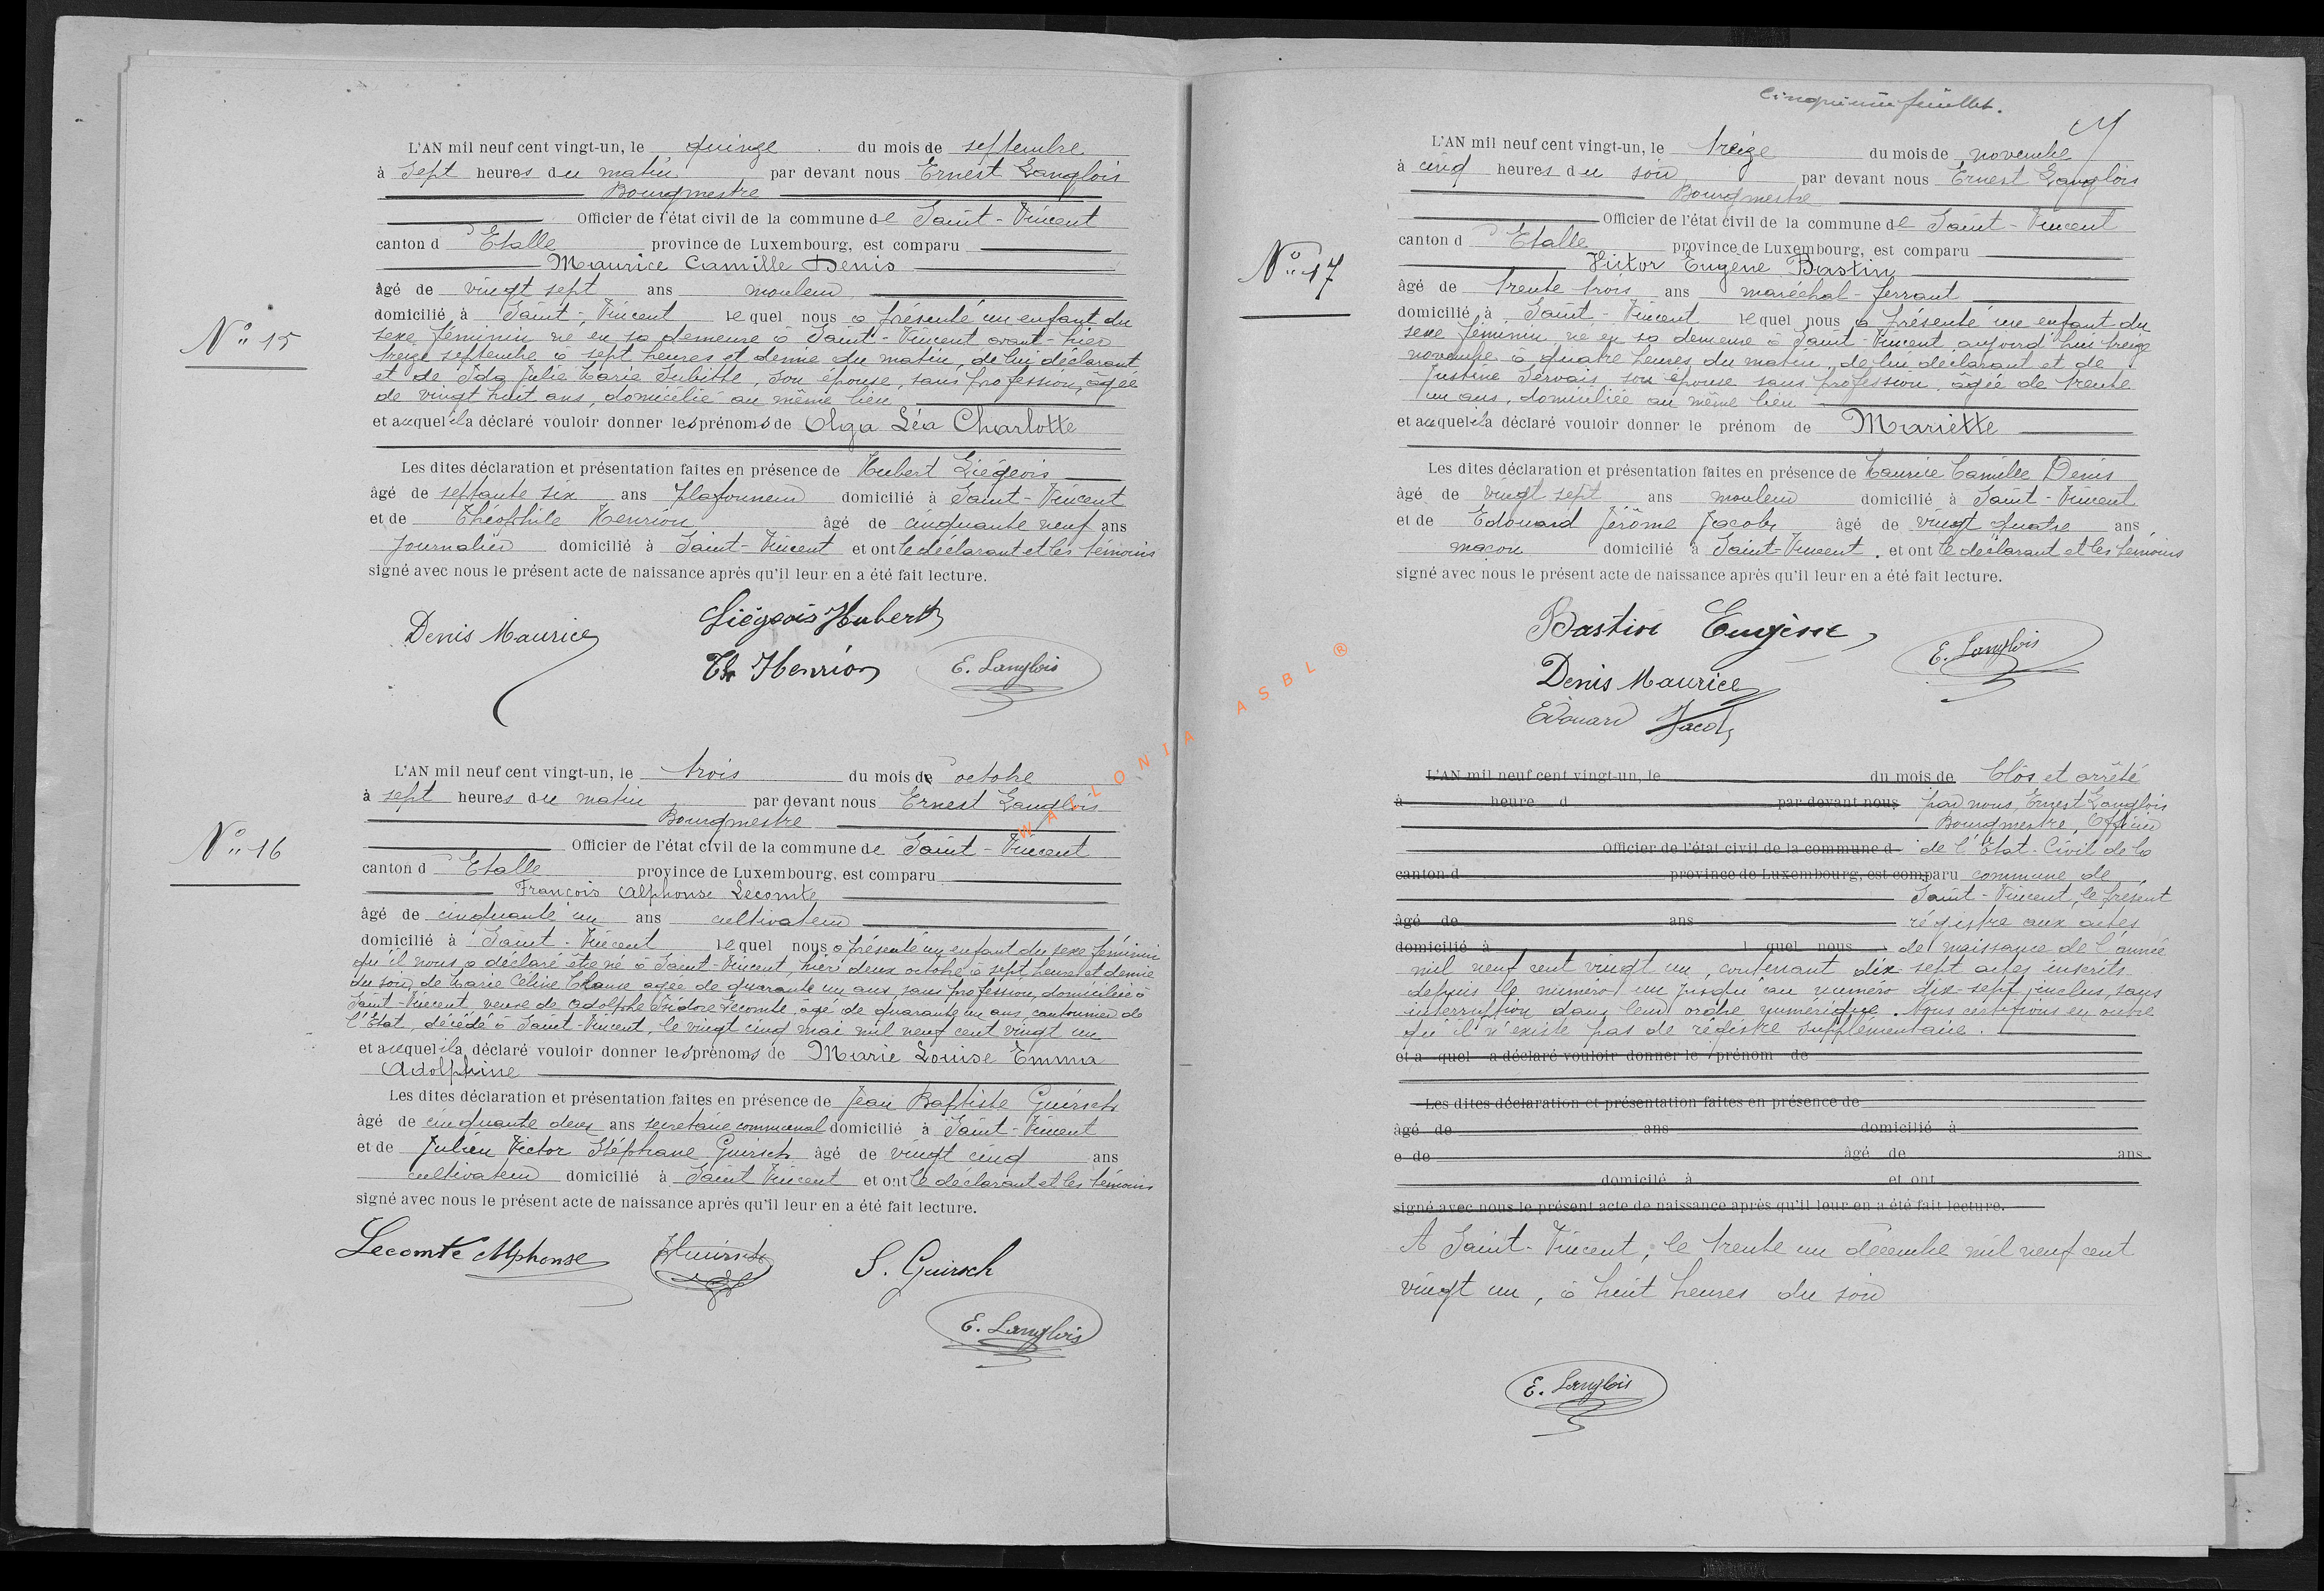 L'AN mil neuf cent vingt-un, le quinze du mois de septembre
à sept heures du matin par devant nous Ernest Langlois
Bourgmestre
Officier de l'état civil de la commune de Saint-Vincent
canton d'Etalle province de Luxembourg, est comparu
Maurice Camille Denis
âgé de vingt sept ans mouleur
domicilié à Saint-Vincent lequel nous a présenté un enfant du
sexe féminin né en sa demeure à Saint-Vincent avant-hier
treize septembre à sept heures et demie du matin, de lui déclarant
et de Ida Julie Marie Jubitte, son épouse, sans profession, âgée
de vingt huit ans, domicilié au même lieu
et auquel il a déclaré vouloir donner les prénoms de Olga Léa Charlotte
Les dites déclaration et présentation faites en présence de Hubert Liégeois
âgé de septante six ans plafonneur domicilié à Saint-Vincent
et de Théophile Henrion âgé de cinquante neuf ans
Journalier domicilié à Saint-Vincent et ont le déclarant et les témoins
signé avec nous le présent acte de naissance après qu'il leur en a été fait lecture.
N° 15
Denis Maurice
Liégeois Hubert
Th Henrion
E. Langlois
L'AN mil neuf cent vingt-un, le trois du mois de octobre
à sept heures du matin par devant nous Ernest Langlois
Bourgmestre
Officier de l'état civil de la commune de Saint-Vincent
canton d'Etalle province de Luxembourg, est comparu
François Alphonse Lecomte
âgé de cinquante un ans cultivateur
domicilié à Saint-Vincent lequel nous a présenté un enfant du sexe féminin
qu'il nous a déclaré être né à Saint-Vincent, hier deux octobre à sept heures et demie
du soir, de Marie Céline Clause agée de quarante un ans, sans profession, domiciliée à
Saint-Vincent veuve de Adolphe Isidore Lecomte, âgé de quarante un ans, cantonnier de
l'Etat, décédé à Saint-Vincent, le vingt cinq mai mil neuf cent vingt un
et auquel il a déclaré vouloir donner les prénoms de Marie Louise Emma
Adolphine
Les dites déclaration et présentation faites en présence de Jean Baptiste Guirsch
âgé de cinquante deux ans secrétaire communal domicilié à Saint-Vincent
et de Julien Victor Stéphane Guirsch âgé de vingt cinq ans
cultivateur domicilié à Saint Vincent et ont le déclarant et les témoins
signé avec nous le présent acte de naissance après qu'il leur en a été fait lecture.
N° 16
Lecomte Alphonse
S. Guirsch
E. Langlois
WALLONIA ASBL ®
Cinquième feuillet.
L'AN mil neuf cent vingt-un, le treize du mois de novembre
à cinq heures du soir par devant nous Ernest Langlois
Bourgmestre
Officier de l'état civil de la commune de Saint-Vincent
canton d'Etalle province de Luxembourg, est comparu
Victor Eugène Bastin
âgé de trente trois ans maréchal-ferrant
domicilié à Saint-Vincent lequel nous a présenté un enfant du
sexe féminin né en sa demeure à Saint-Vincent aujourd'hui treize
novembre à quatre heures du matin, de lui déclarant et de
Justine Servais son épouse sans profession, âgée de trente
un ans, domiciliée au même lieu
et auquel il a déclaré vouloir donner le prénom de Mariette
Les dites déclaration et présentation faites en présence de Maurice Camille Denis
âgé de vingt sept ans mouleur domicilié à Saint-Vincent
et de Edouard Jérôme Jacoby âgé de vingt quatre ans
maçon domicilié à Saint-Vincent. et ont le déclarant et les témoins
signé avec nous le présent acte de naissance après qu'il leur en a été fait lecture.
N° 17
Bastin Eugène
Denis Maurice
Edouard Jacoby
E. Langlois
L'AN mil neuf cent vingt-un, le du mois de Clos et arrêté
à heure d par devant nous par nous, Ernest Langlois
Bourgmestre, Officier
Officier de l'état civil de la commune d de l'Etat-Civil de la
canton d province de Luxembourg, est comparu commune de
Saint-Vincent, le présent
âgé de ans régistre aux actes
domicilié à l quel nous de naissance de l'année
mil neuf cent vingt un, contenant dix-sept actes inscrits
depuis le numéro un jusqu'au numéro dix-sept inclus, sans
interruption dans leur ordre numérique. Nous certifions en outre
qu'il n'existe pas de régistre supplémentaire.
et a quel a déclaré vouloir donner le prénom de
Les dites déclaration et présentation faites en présence de
âgé de ans domicilié à
e de âgé de ans
domicilé à et ont
signé avec nous le présent acte de naissance après qu'il leur en a été fait lecture.
A Saint-Vincent, le trente un décembre mil neuf cent
vingt un, à huit heures du soir
E. Langlois